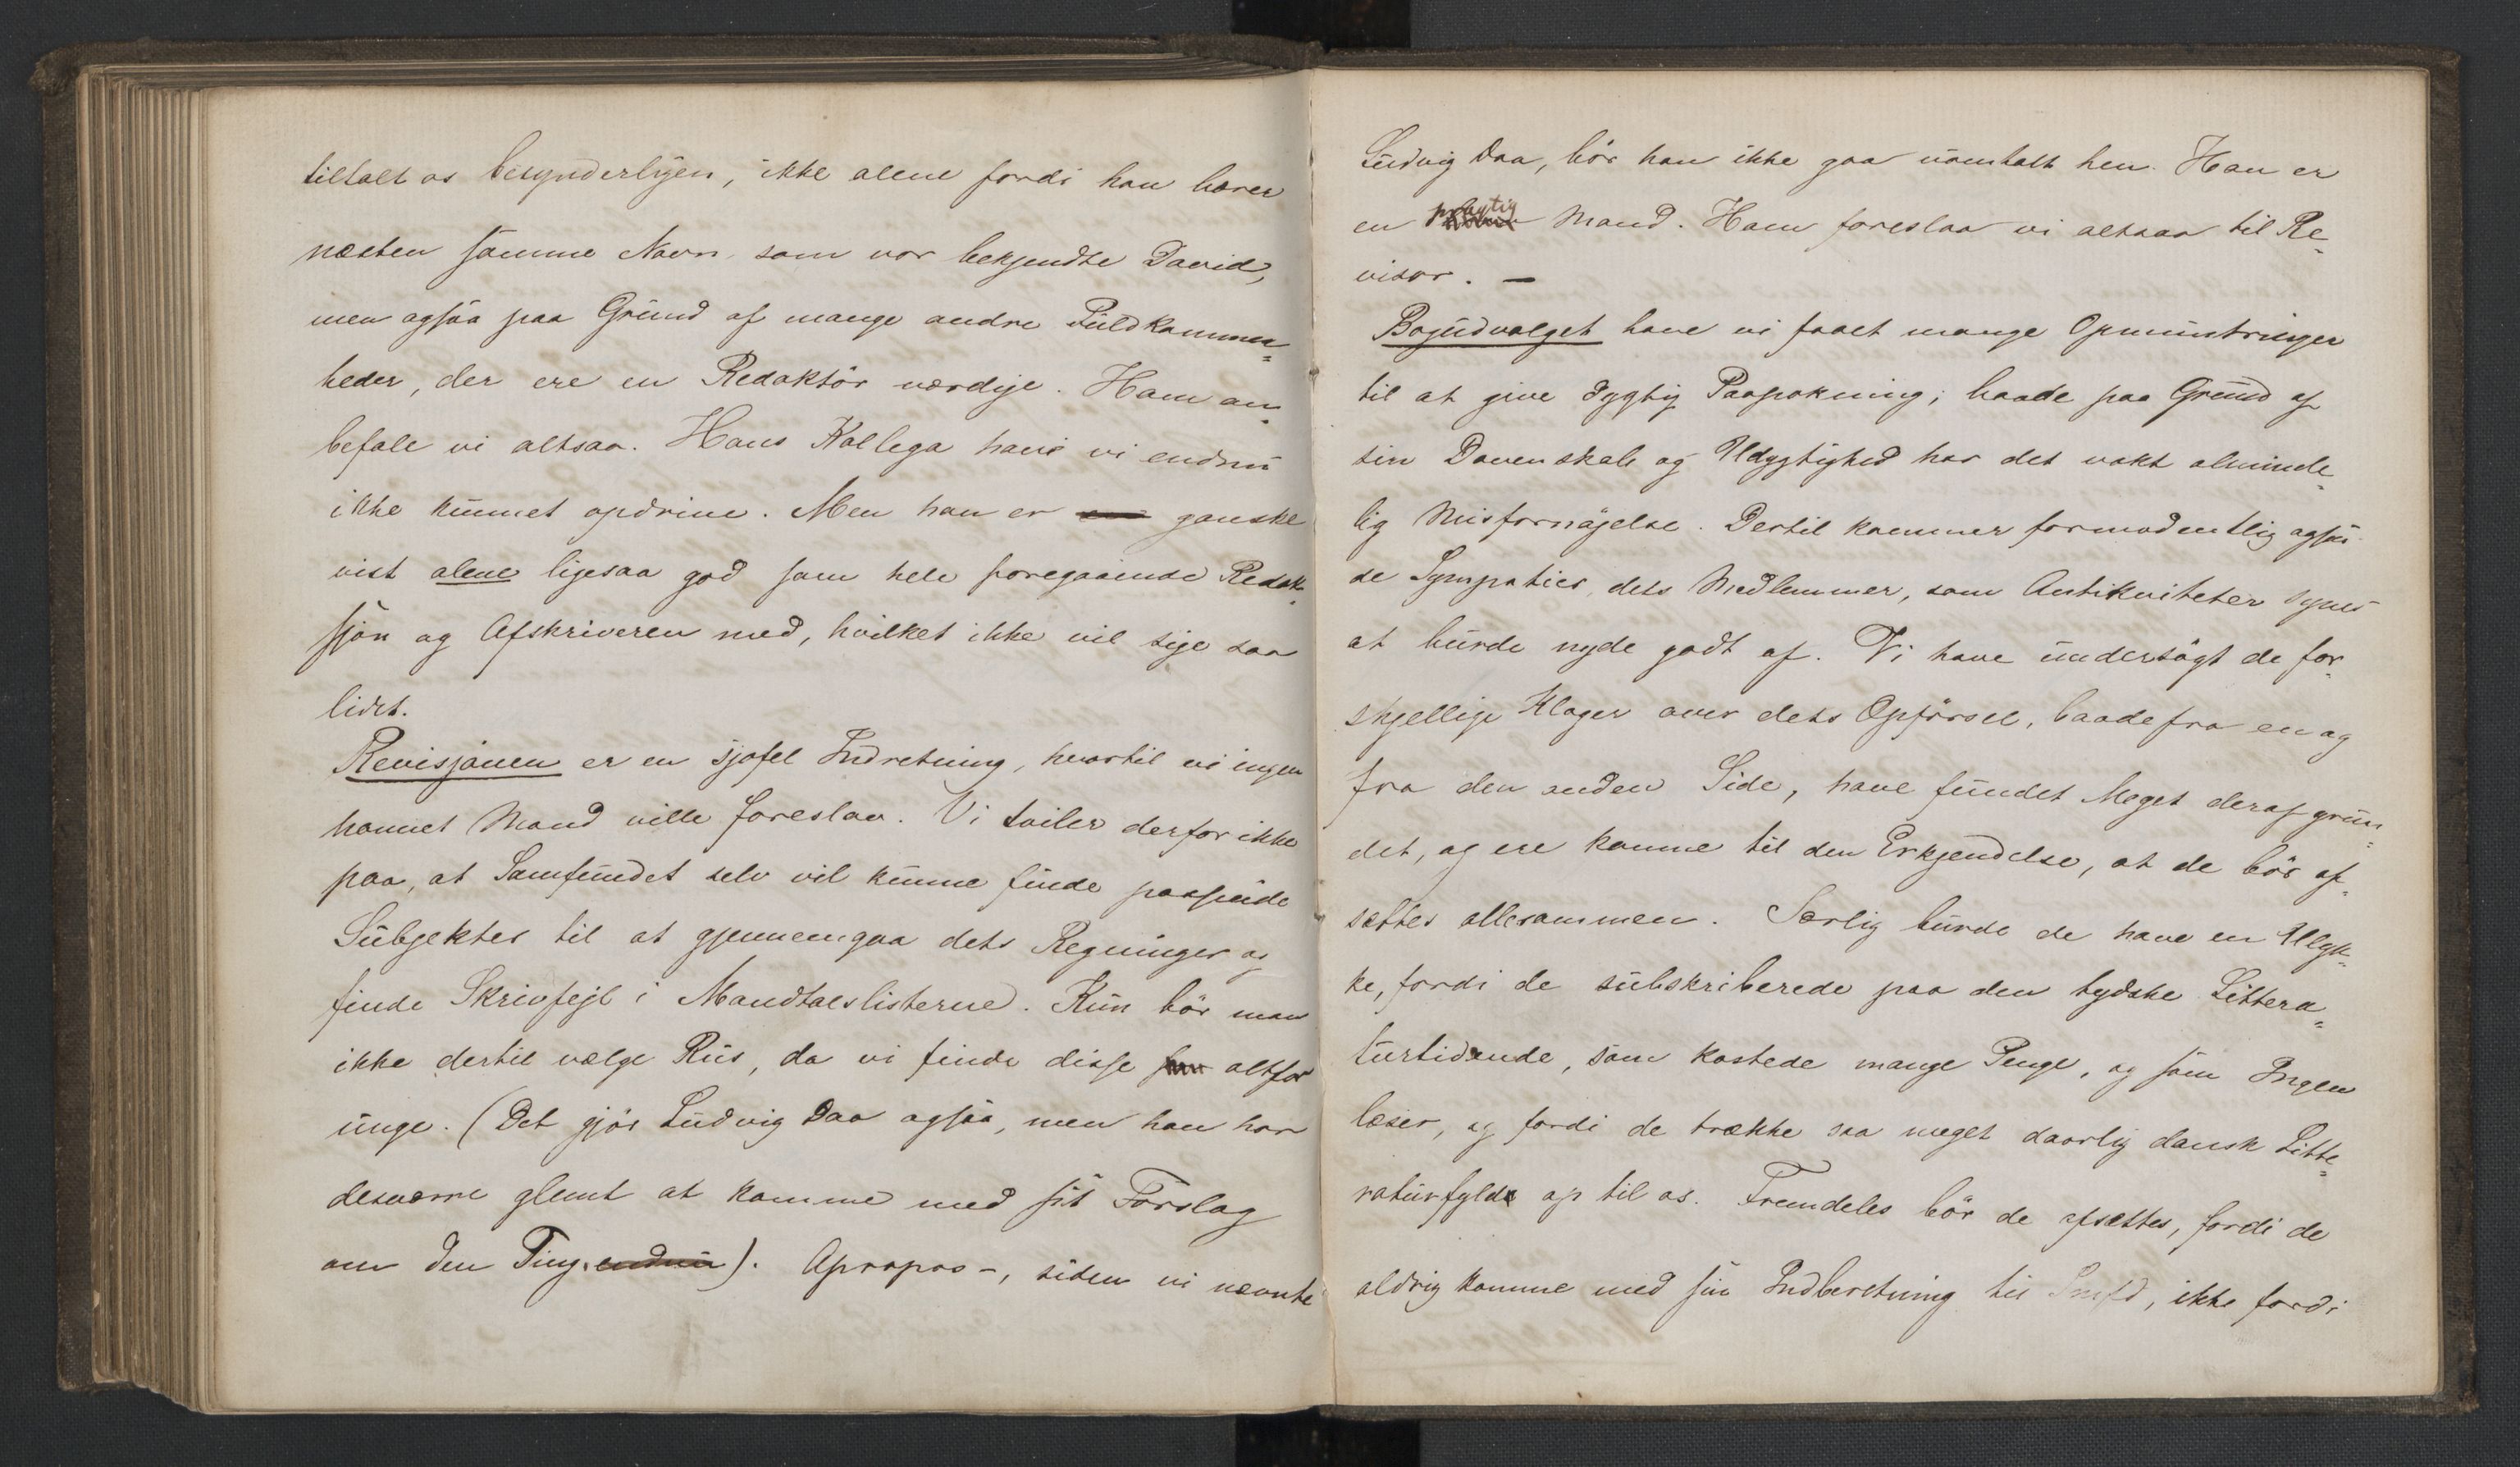 tiltalt os besynderligen, ikke alene fordi han bærer
næsten samme Navn, som vor bekjendte David,
men ogsaa paa Grund af mange andre Fuldkommen-
heder, der ere en Redaktör værdige. Ham an-
befale vi altsaa. Hans Kollega have vi endnu
ikke kunnet opdrive. Men han er ganske
vist alene ligesaa god som hele foregaaende Redak-
sjon og Afskriveren med, hvilket ikke vil sige saa
lidet.
Revisjonen er en sjofel Indretning, hvortil vi ingen
honnet Mand ville foreslaa. Vi tviler derfor ikke
paa, at Samfundet selv vil kunne finde passende
Subjekter til at gjennemgaa dets Regninger og
finde Skrivfejl i Mandtalslisterne. Kun bör man
ikke dertil vælge Rus, da vi finde disse altfor
unge. (Det gjör Ludvig Daa ogsaa, men han har
desværre glemt at komme med sit Forslag
om den Ting. endnu). Apropos -, siden vi nævnte
Ludvig Daa, bör han ikke gaa uomtalt hen. Han er
en prægtig Mand. Ham foreslaa vi altsaa til Re-
visor. —
Bogudvalget have vi faaet mange Opmuntringer
til at give dygtig Paapakning; baade paa Grund af
sin Dovenskab og Udygtighed har det vakt alminde-
lig Misfornöjelse. Dertil kommer formodentlig ogsaa
de Sympatier, dets Medlemmer, som Antikviteter synes
at burde nyde godt af. Vi have undersögt de for-
skjellige Klager over dets Opförsel, baade fra en og
fra den anden Side, have fundet Meget deraf grun-
det, og ere komne til den Erkjendelse, at de bör af-
sættes allesammen. Særlig burde de have en Ulyk-
ke, fordi de subskriberede paa den tydske Littera-
turtidende, som kostede mange Penge, og som Ingen
læser, og fordi de trække saa meget daarlig dansk Litte-
raturfylde op til os. Fremdeles bör de afsættes, fordi de
aldrig komme med sin Indberetning til Smfd, ikke fordi